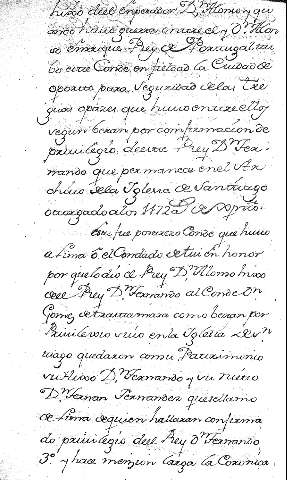 hijo del emperador Dⁿ Alonso y qu
ando huuo guerras entre el y Dⁿ Alon
so enrriquez Rey de Portugal tu
bo este Conde en fieldad la Ciudad de
oporto para seguridad de las tre
guas o pazes que huuo entre ellos
segun beran por confirmacion de
priuilegio de este Rey Dⁿ Fer
nando que permanece en el Ar
chiuo de la Iglesia de Santiago
otorgado a los 1172 aˢ de
este fue postrero Conde que huuo
a Lima o el Condado de tui en honor
por que lo dio el Rey Dⁿ Alonso hijo
del Rey Dⁿ Fernando al Conde Dⁿ
Gomez de trastamara como beran por
Priuilegio suio en la Iglesia de Sⁿ
tiago quedaron como Patrimonio
su Hijo Dⁿ Fernando y su nieto
Dⁿ Fernan Fernandez que se llamo
de Lima de quien hallaran confirma
do priuilegio del Rey Dⁿ Fernando
3º y hace mencion larga la Coronica